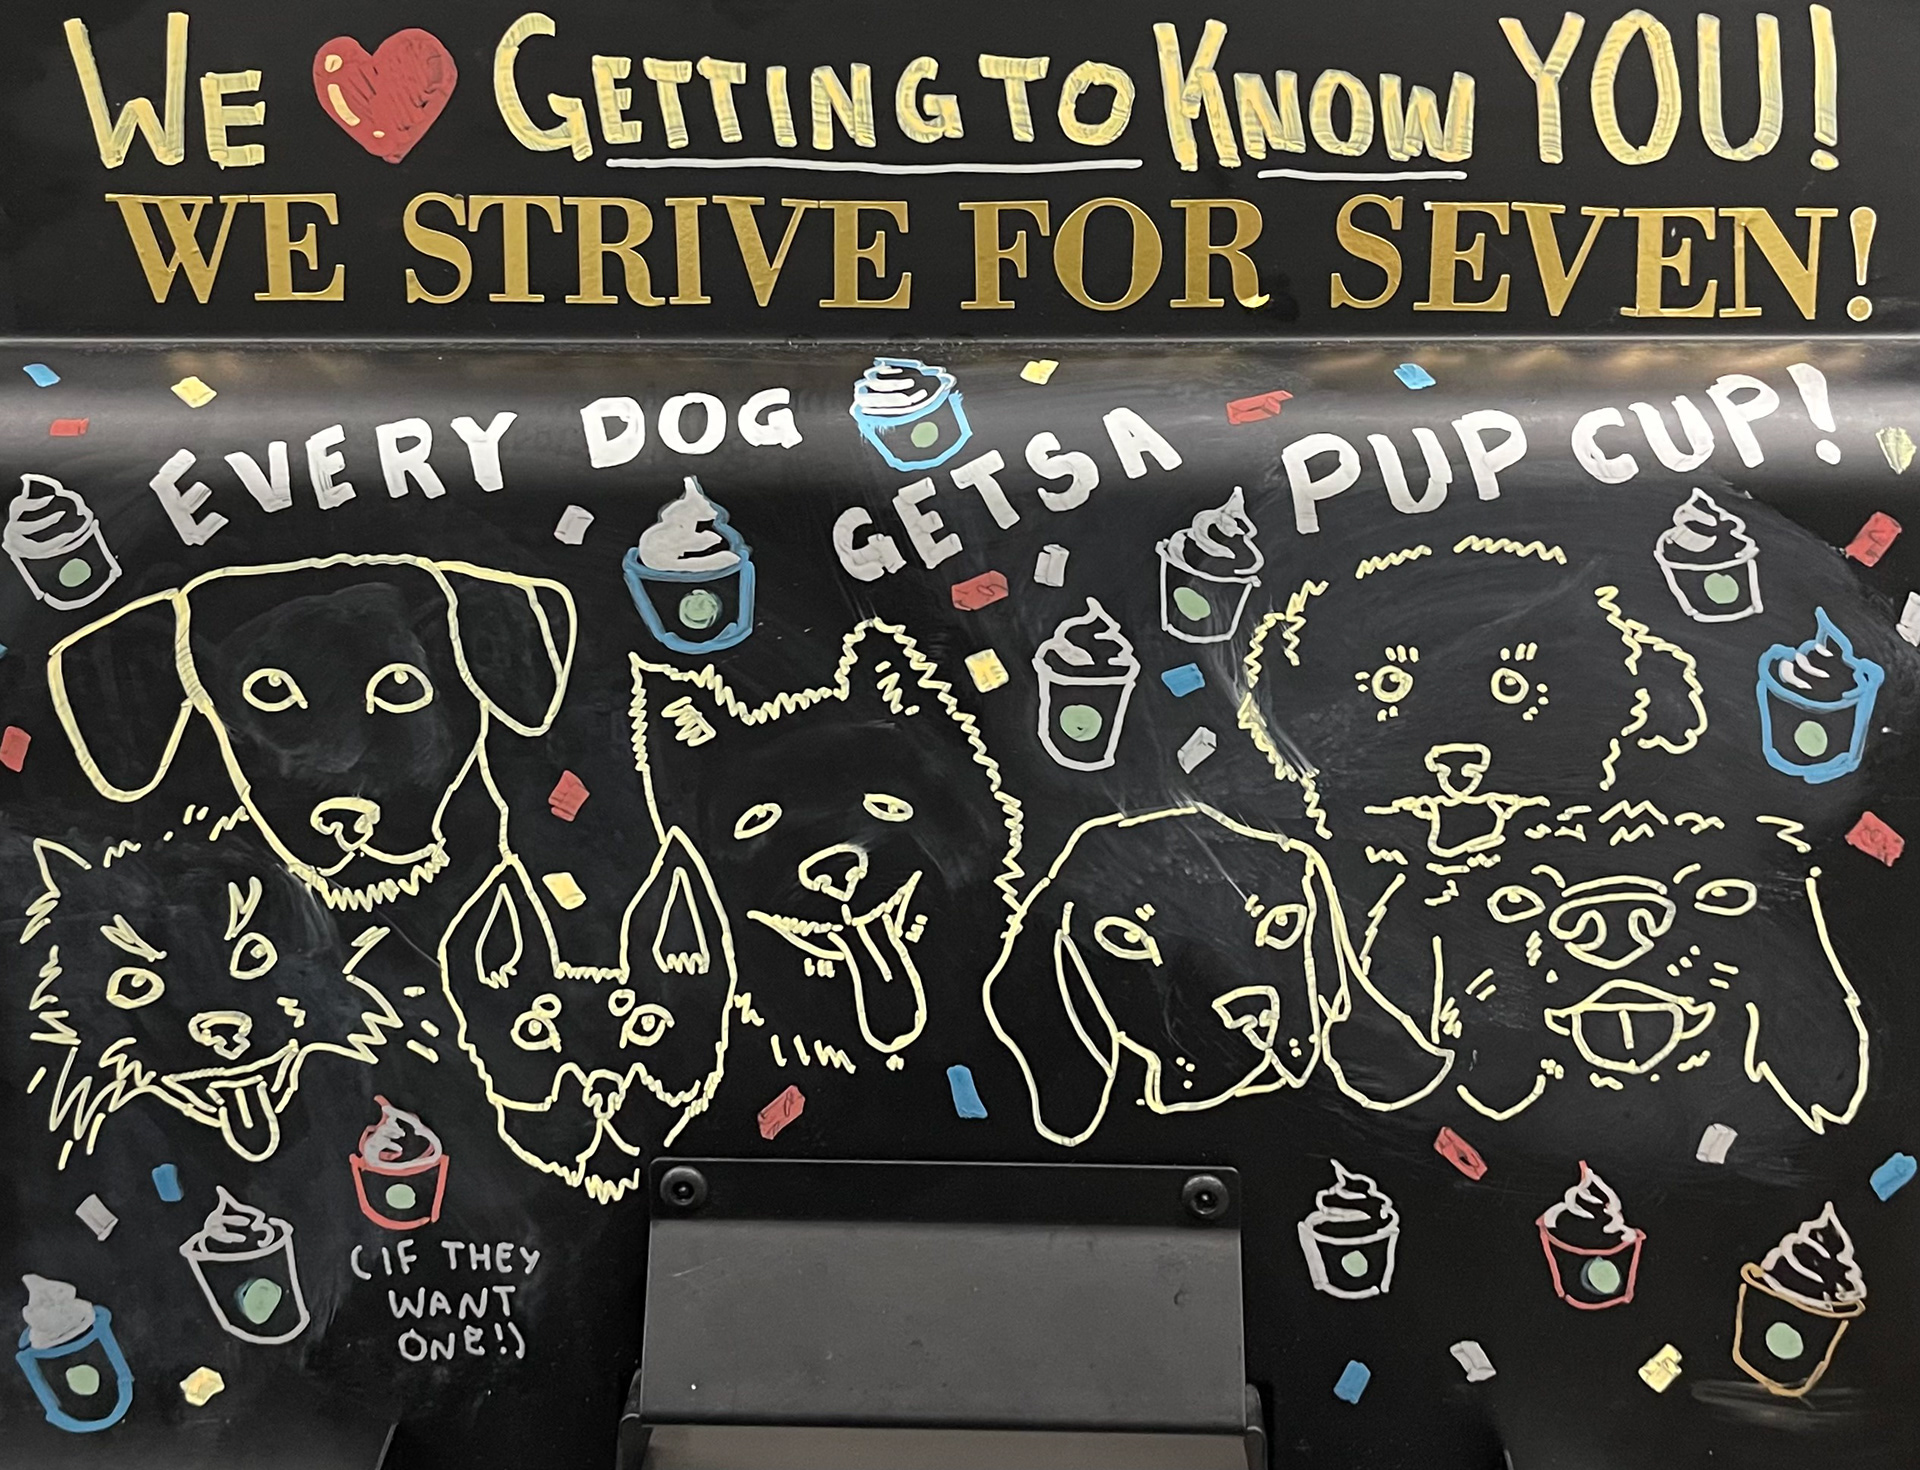 WE ❤ GETTING TO KNOW YOU!
WE STRIVE FOR SEVEN!
EVERY DOG GETS A PUP CUP!
(IF THEY
WANT
ONE!)